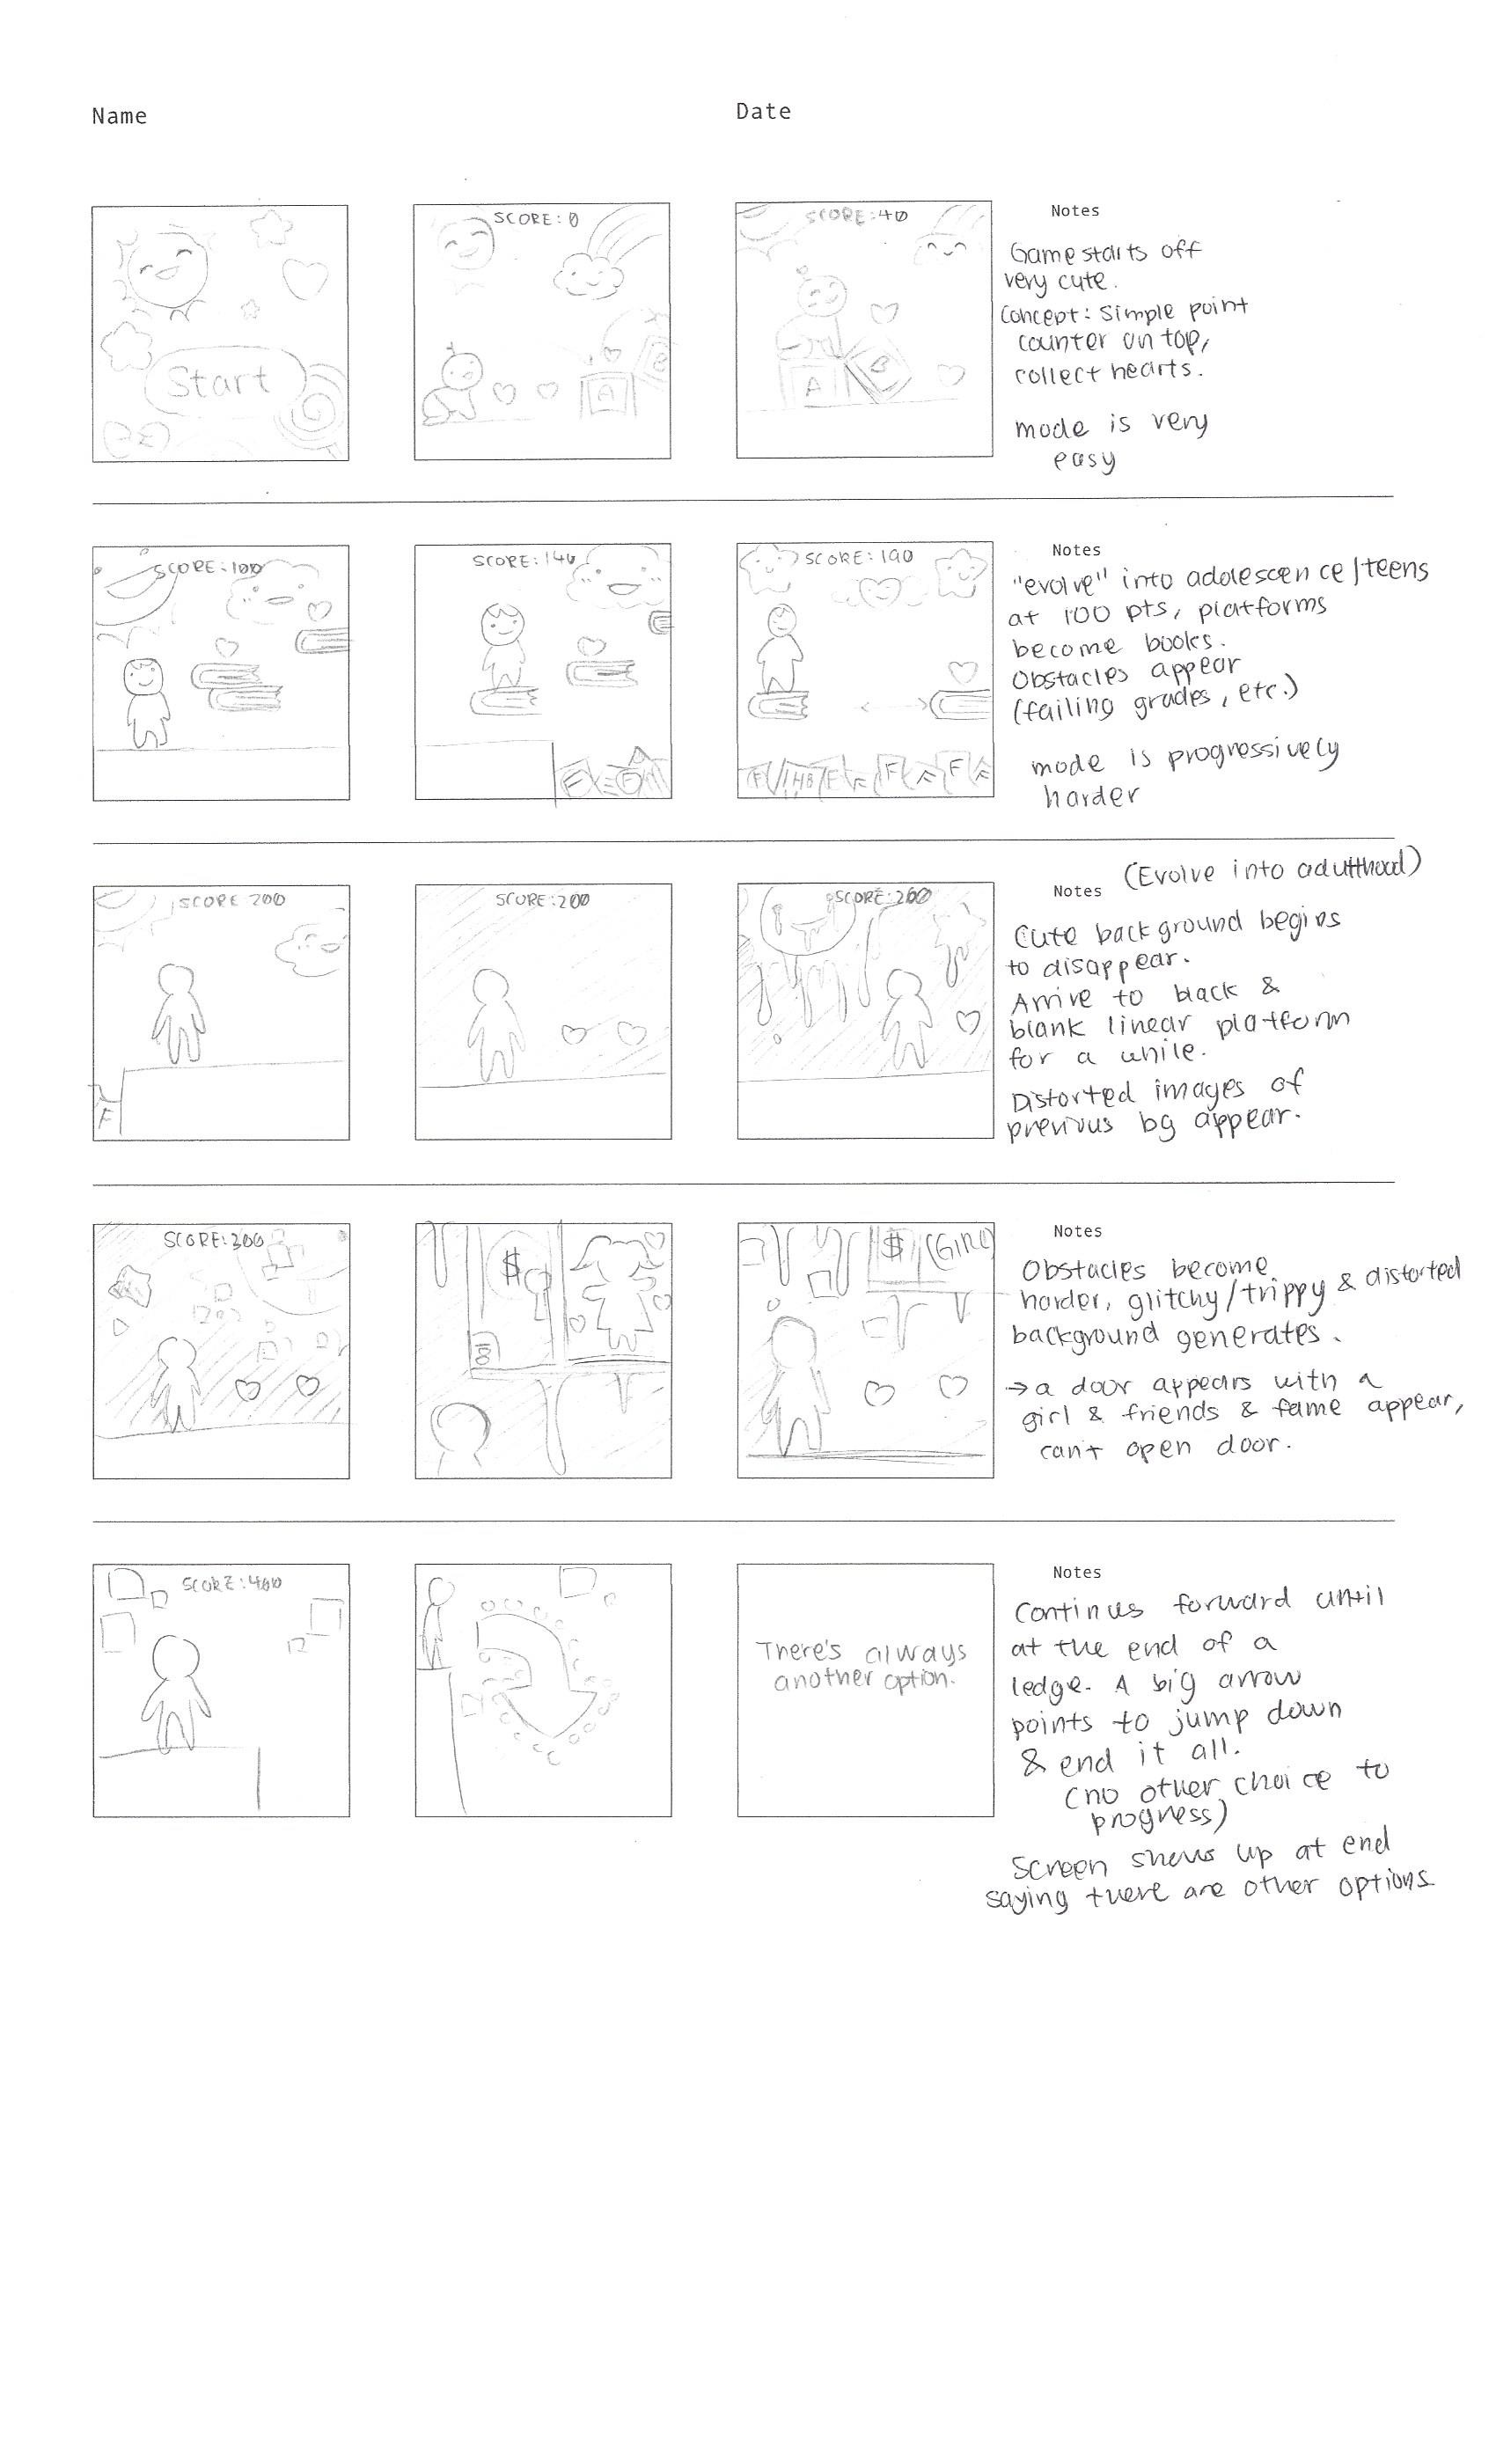 Name
Date
Start
SCORE: 0
A
SCORE: 40
A
B
Notes
Game starts off
very cute.
Concept: Simple point
counter on top,
collect hearts.
mode is very
easy
SCORE: 100
SCORE: 140
F
F
SCORE: 190
F
F
F
F
F
F
Notes
"evolve" into adolescence/teens
at 100 pts, platforms
become books.
Obstacles appear
(failing grades, etc.)
mode is progressively
harder
SCORE 200
F
SCORE: 200
SCORE: 260
Notes
(Evolve into adulthood)
Cute background begins
to disappear.
Arrive to black &
blank linear platform
for a while.
Distorted images of
previous bg appear.
SCORE: 300
$
$
(GIRL)
Notes
Obstacles become
harder, glitchy/trippy & distorted
background generates.
→ a door appears with a
girl & friends & fame appear,
can't open door.
SCORE: 400
There's always
another option.
Notes
Continues forward until
at the end of a
ledge. A big arrow
points to jump down
& end it all.
(no other choice to
progress)
Screen shows up at end
saying there are other options